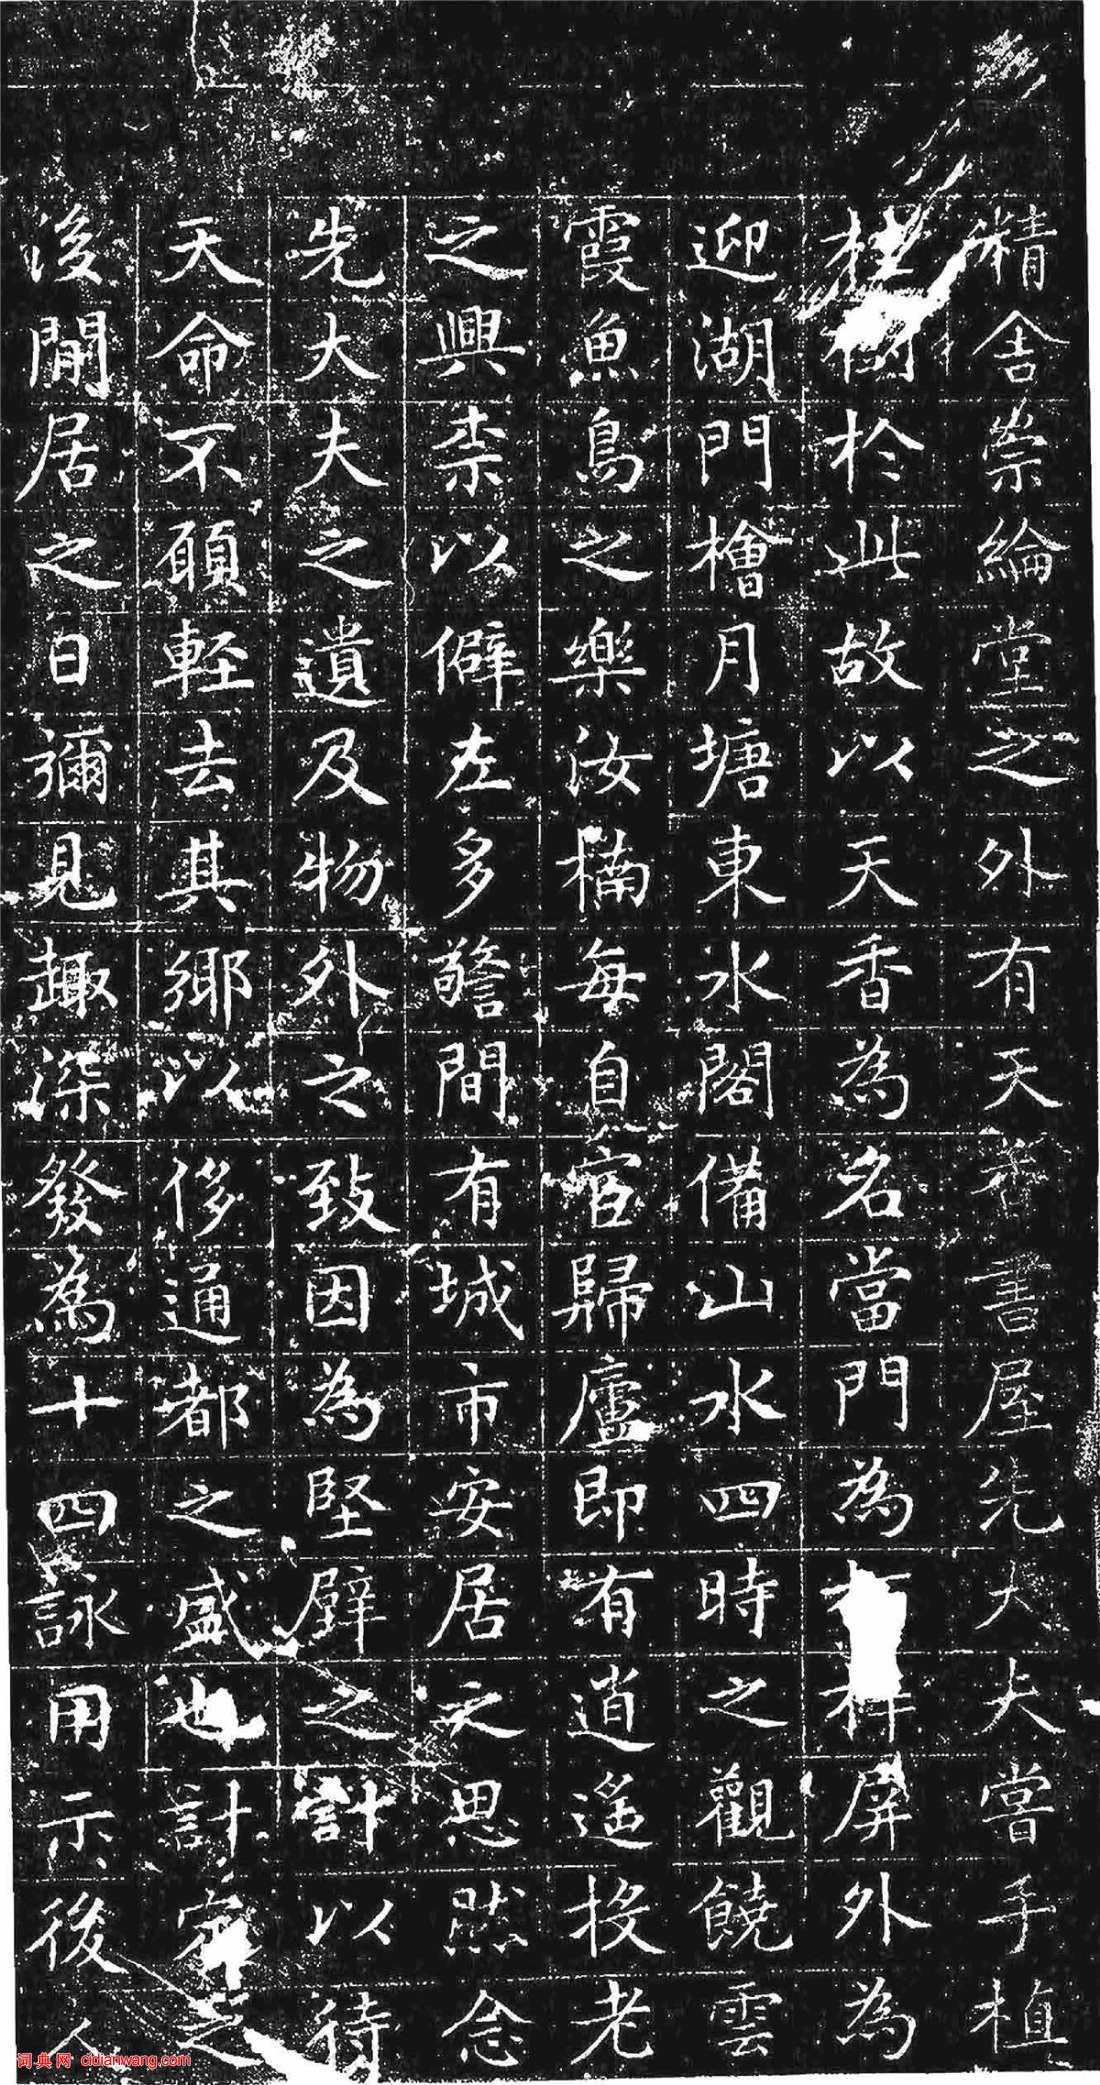 精舍崇綸堂之外有天香書屋先大夫嘗手植
桂樹於此故以天香為名當門為屏外為
迎湖門檜月塘東水閣備山水四時之觀饒雲
霞魚鳥之樂汝楠每自宦歸廬即有逍遙投老
之興柰以僻左多警間有城市安居之思然念
先大夫之遺及物外之致因為堅壁之計以待
天命不願輕去其鄉以侈通都之盛也計定之
後閒居之日彌見趣深發為十四詠用示後人
词典网 cidianwang.com